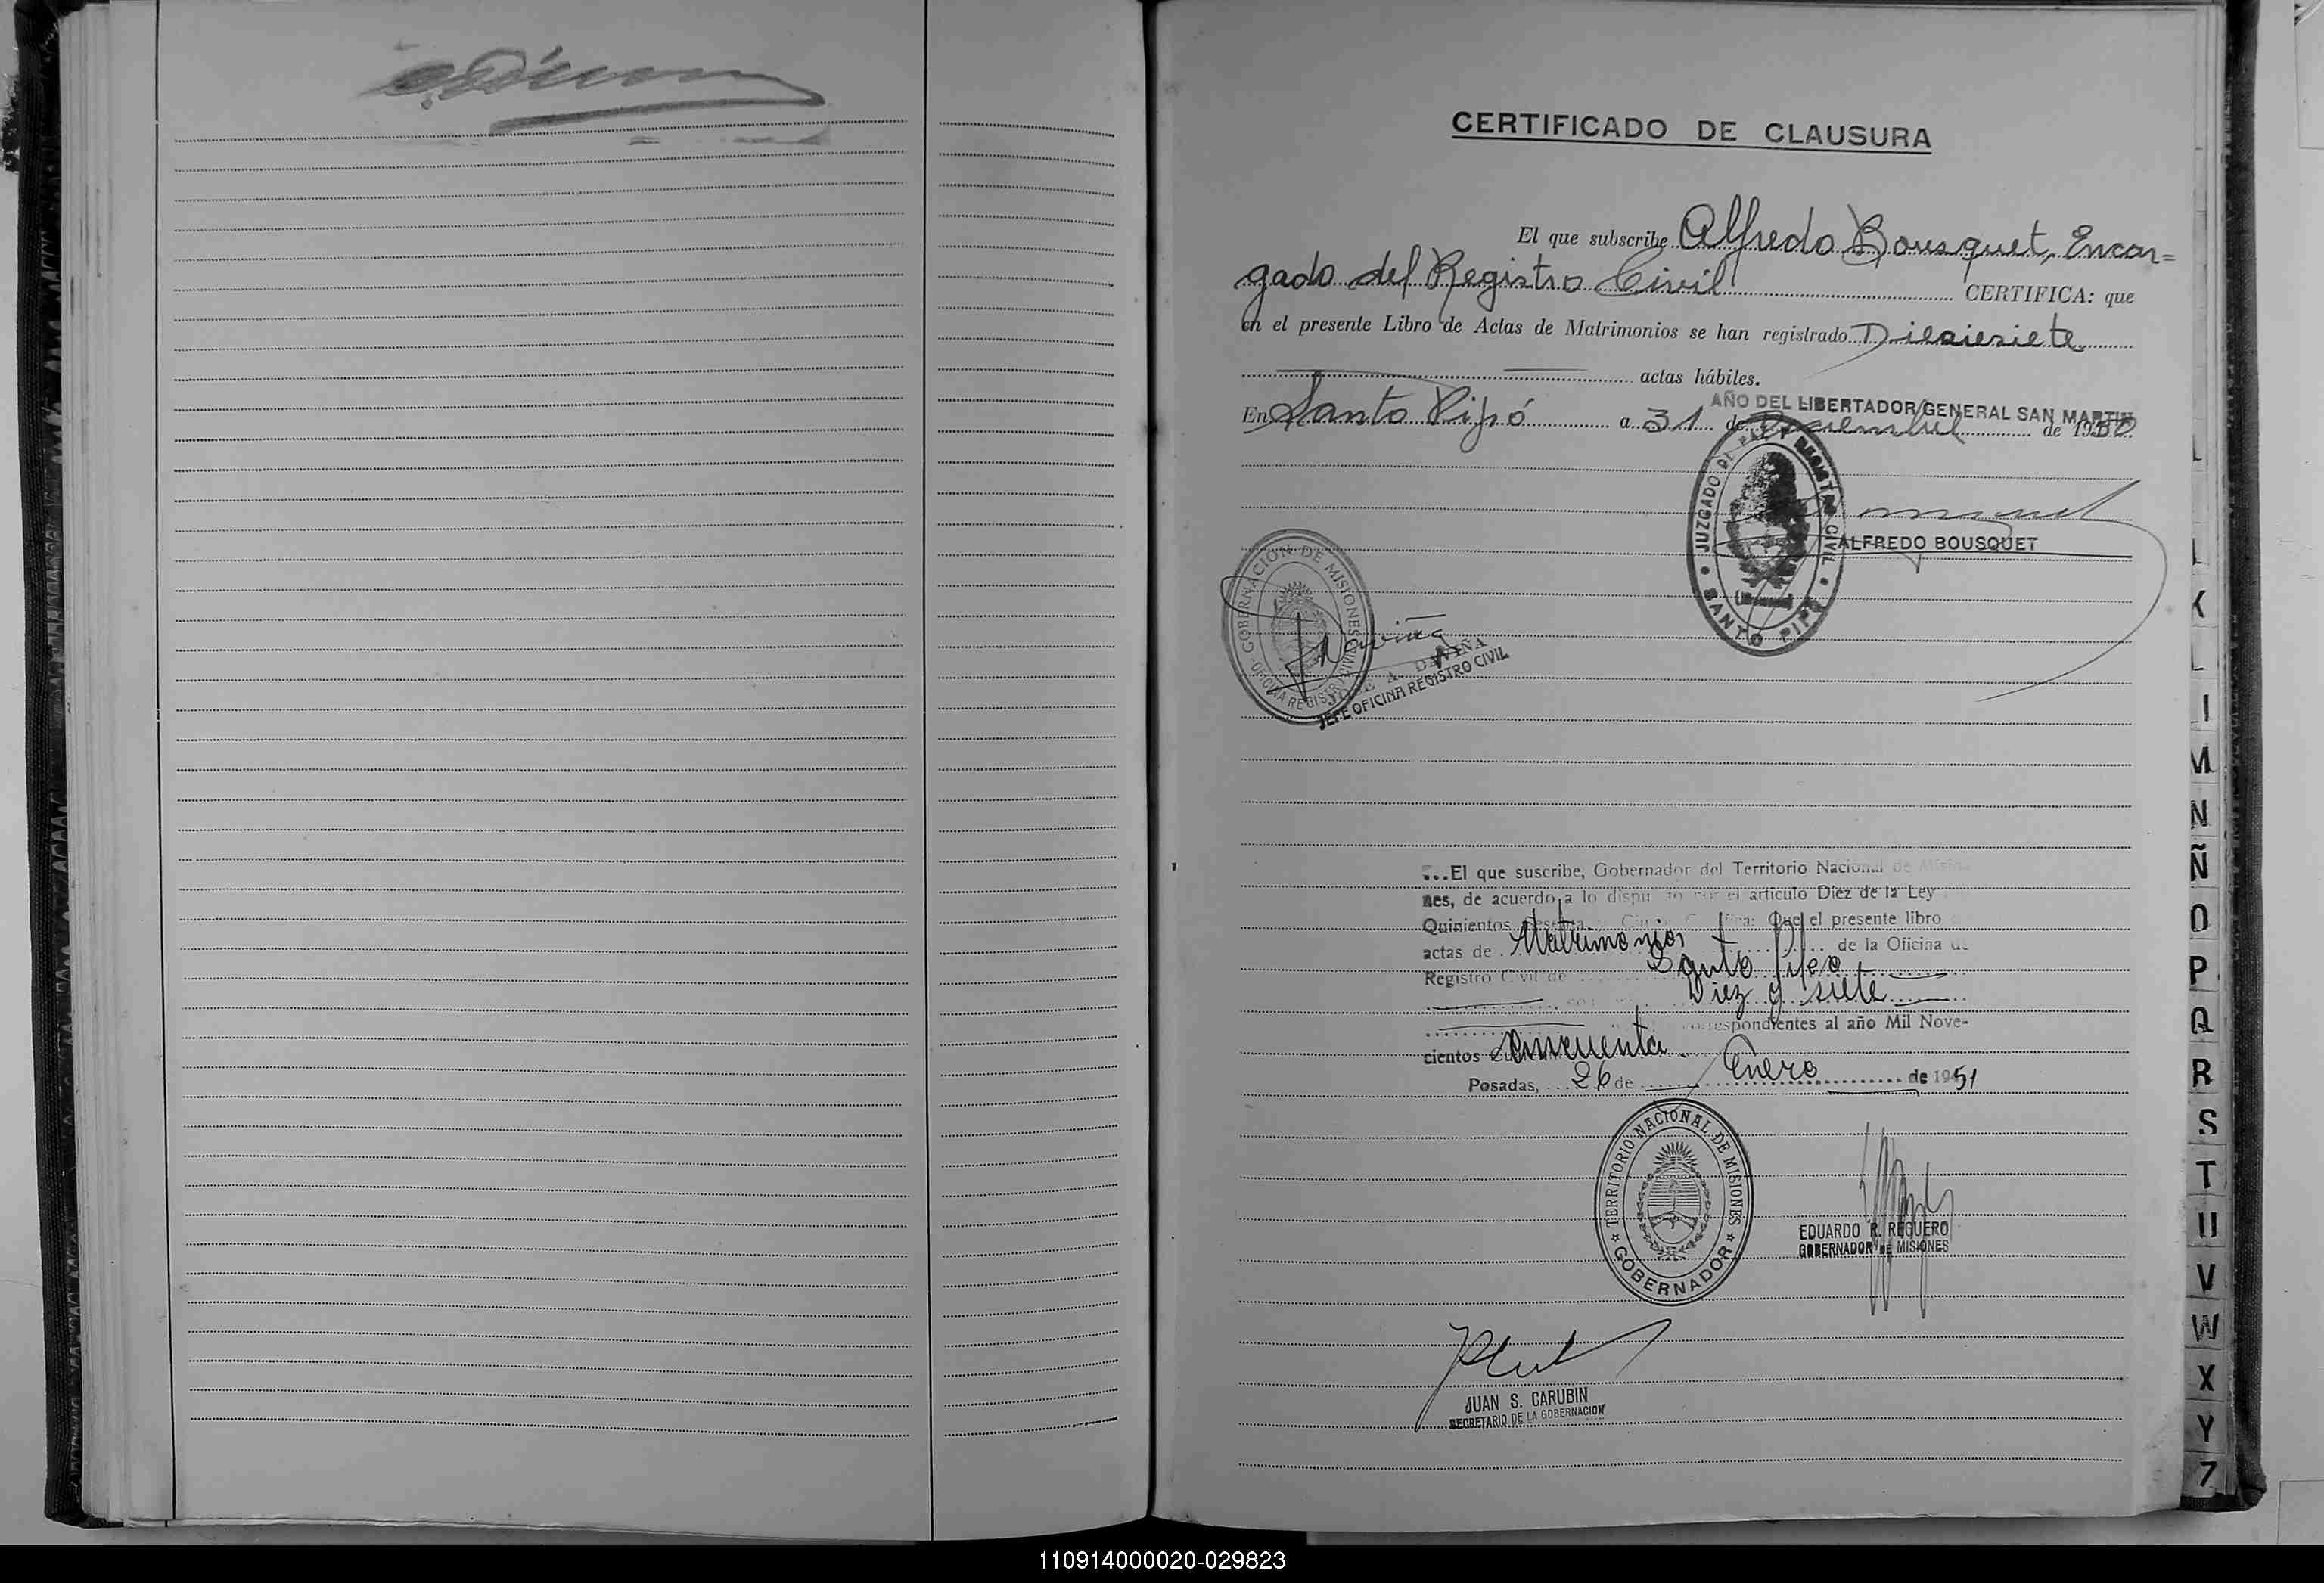 CERTIFICADO DE CLAUSURA
El que subscribe Alfredo Bousquet, Encar=
gado del Registro Civil CERTIFICA: que
en el presente Libro de Actas de Matrimonios se han registrado Dieciesiete
actas hábiles.
AÑO DEL LIBERTADOR GENERAL SAN MARTIN
En Santo Pipó a 31 de Diciembre de 1950
JUZGADO DE PAZ Y REGISTRO CIVIL
SANTO PIPO
ALFREDO BOUSQUET
GOBERNACION DE MISIONES
OFICINA REGISTRO CIVIL
A. DAVIÑA
JEFE OFICINA REGISTRO CIVIL
...El que suscribe, Gobernador del Territorio Nacional de Misio-
nes, de acuerdo a lo dispuesto por el artículo Diez de la Ley
Quinientos Que el presente libro
actas de Matrimonios de la Oficina de
Registro Civil de Santo Pipó
Diez y siete
correspondientes al año Mil Nove-
cientos Cincuenta.
Posadas, 26 de Enero de 1951
TERRITORIO NACIONAL DE MISIONES
GOBERNADOR
EDUARDO R. REGUERO
GOBERNADOR DE MISIONES
JUAN S. CARUBIN
SECRETARIO DE LA GOBERNACION
K
L
I
M
N
Ñ
O
P
Q
R
S
T
U
V
W
X
Y
Z
110914000020-029823